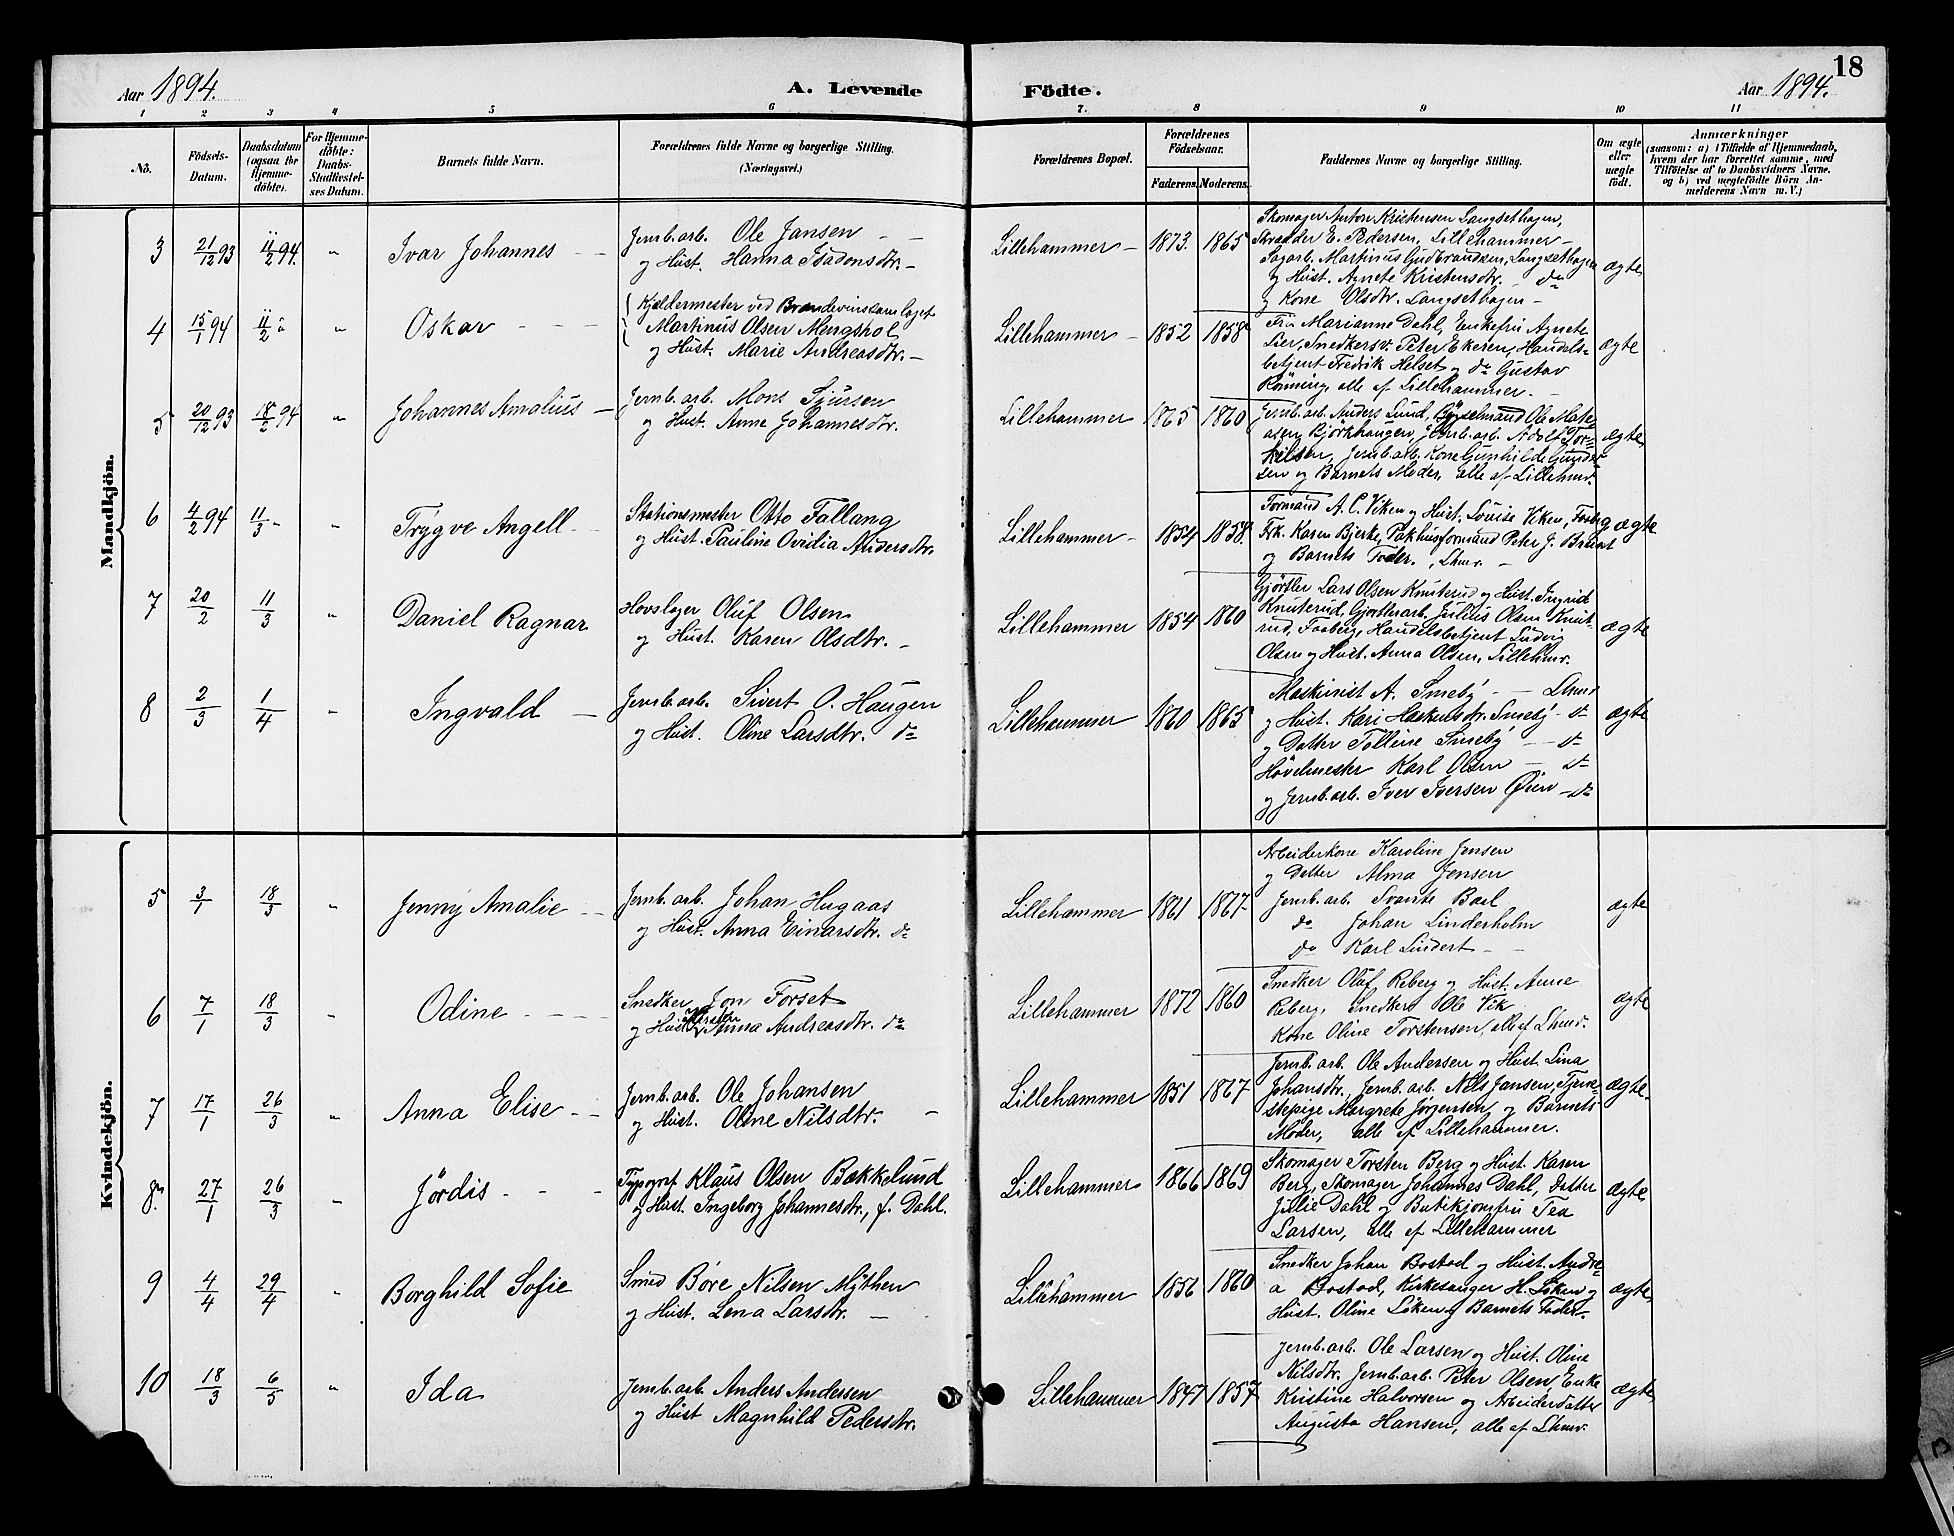 18
Aar 1894. A. Levende Födte. Aar 1894.
1 2 3 4 5 6 7. 8 9 10 11
No.
Födsels-
Datum.
Daabsdatum
(ogsaa for
Hjemme-
döbte).
For Hjemme-
döbte:
Daabs-
Stadfæstel-
ses Datum.
Barnets fulde Navn.
Forældrenes fulde Navne og borgerlige Stilling.
(Næringsvei.)
Forældrenes Bopæl.
Forældrenes
Födselsaar.
Faderens. Moderens.
Faddernes Navne og borgerlige Stilling.
Om ægte
eller
uægte
født.
Anmærkninger
(saasom: a) i Tilfælde af Hjemmedaab,
hvem der har forrettet samme, med
Tilföielse af to Daabsvidners Navne.
og b) ved uægtefödte Börn An-
melderens Navn m. V.)
Mandkjön.
3 21/12 93 11/2 94. " Ivar Johannes
Jernb.arb. Ole Jansen
og Hust. Hanna
Lillehammer 1873. 1865
Skomager Anton Kristensen Langsethagen,
Skrædder E. Pedersen, Lillehammer
Sagarb. Martinus Gudbrandsen, Langsethagen
og Hust. Agnete Kristensdtr. do
og Kone Olsdtr. Langsethagen
ægte
4 15/1 94 11/2 " " Oskar
Kjældermester ved Brændevinssamlaget
Martinus Olsen Mengshol
og Hust. Marie Andreasdtr.
Lillehammer 1852 1858
Fru Marianne Dahl, Enkefru Agnete
Lier, Snedkersv. Peter Ekeren, Handels-
betjent Fredrik Helset og do Gustav
Rönning, alle af Lillehammer.
ægte
5 20/12 93 18/2 94 " Johannes Amalius
Jernb.arb. Mons Sjursen
og Hust. Anne Johannesdtr.
Lillehammer 1865 1860
Jernb.arb. Anders Lund, Ole Mate-
asen Björkhaugen, Jernb.arb. Adolf Tor-
kelsen, Jernb.arb. Kone Gunhilde Gunder-
sen og Barnets Moder, alle af Lillehmr.
ægte
6 4/2 94 11/3 " " Trygve Angell
Stationsmester Otto Fallang
og Hust. Pauline Ovidia Andersdtr.
Lillehammer 1854 1858.
Formand A. C. Viken og Hust. Louise Viken, Faabg
Frk. Karen Bjerke, Pakhusformand Peter J. Bruat
og Barnets Fader. Lhmr.
ægte
7 20/2 11/3 " Daniel Ragnar
Hovslager Oluf Olsen
og Hust. Karen Olsdtr.
Lillehammer 1854 1860
Gjörtler Lars Olsen Knuterud og Hust. Ingrid
Knuterud, Gjörtlerarb. Julius Olsen Knut-
rud, Faaberg, Handelsbetjent Ludvig
Olsen og Hust. Anna Olsen, Lillehmr.
ægte
8 2/3 1/4 " Ingvald
Jernb.arb. Sivert O. Haugen
og Hust. Oline Larsdtr. do
Lillehammer 1860 1865
Maskinist A. Smeby Lhmr
og Hust. Kari Smeby do
og Datter Tolline Smeby do
Hövelmester Karl Olsen do
og Jernb.arb. Iver Iversen Øien do
ægte
Kvindekjön.
5 3/1 18/3 " Jenny Amalie
Jernb.arb. Johan Hugaas
og Hust. Anna Einarsdtr. do
Lillehammer 1861 1867
Arbeiderkone Karoline Jensen
og Datter Alma Jensen
Jernb.arb. Svante Bael
do Johan Linderholm
do Karl Lindert
ægte
6 7/1 18/3 " Odine
Snedker Jon Forset
og Hust. Anna Andreasdtr. do
Lillehammer 1872 1860
Snedker Oluf Reberg og Hust. Anne
Reberg, Snedker Ole Vik
Kone Oline Torstensen, alle af Lhmr.
ægte
7 17/1 26/3 " Anna Elise
Jernb.arb. Ole Johansen
og Hust. Oline Nilsdtr.
Lillehammer 1851 1867
Jernb.arb. Ole Andersen og Hust. Lina
Johansdtr., Jernb.arb. Nils Jansen, Tjene-
stepige Margrete Jørgensen og Barnets
Moder, alle af Lillehammer.
ægte.
8. 27/1 26/3 " Jördis
Typograf Klaus Olsen Bækkelund
og Hust. Ingeborg Johannesdtr., f. Dahl.
Lillehammer 1866 1869
Skomager Torsten Berg og Hust. Karen
Berg, Skomager Johannes Dahl, Datter
Julie Dahl og Butikjomfru Tea
Larsen, alle af Lillehammer
ægte
9 4/4 29/4 " Borghild Sofie
Smed Böre Nilsen Mythen
og Hust. Lena Larsdtr.
Lillehammer 1856 1860
Snedker Johan Bostad og Hust. Andre-
a Bostad, Kirkesanger H. Löken og
Hust. Oline Löken og Barnets Fader.
ægte,
10 18/3 6/5 " Ida
Jernb.arb. Anders Andersen
og Hust Magnhild Pedersdtr.
Lillehammer 1847 1857
Jernb.arb. Ole Larsen og Hust. Oline
Nilsdtr. Jernb.arb. Peter Olsen Enke
Kristine Halvorsen og Arbeiderdatter
Augusta Hansen, alle af Lhmr.
ægte,